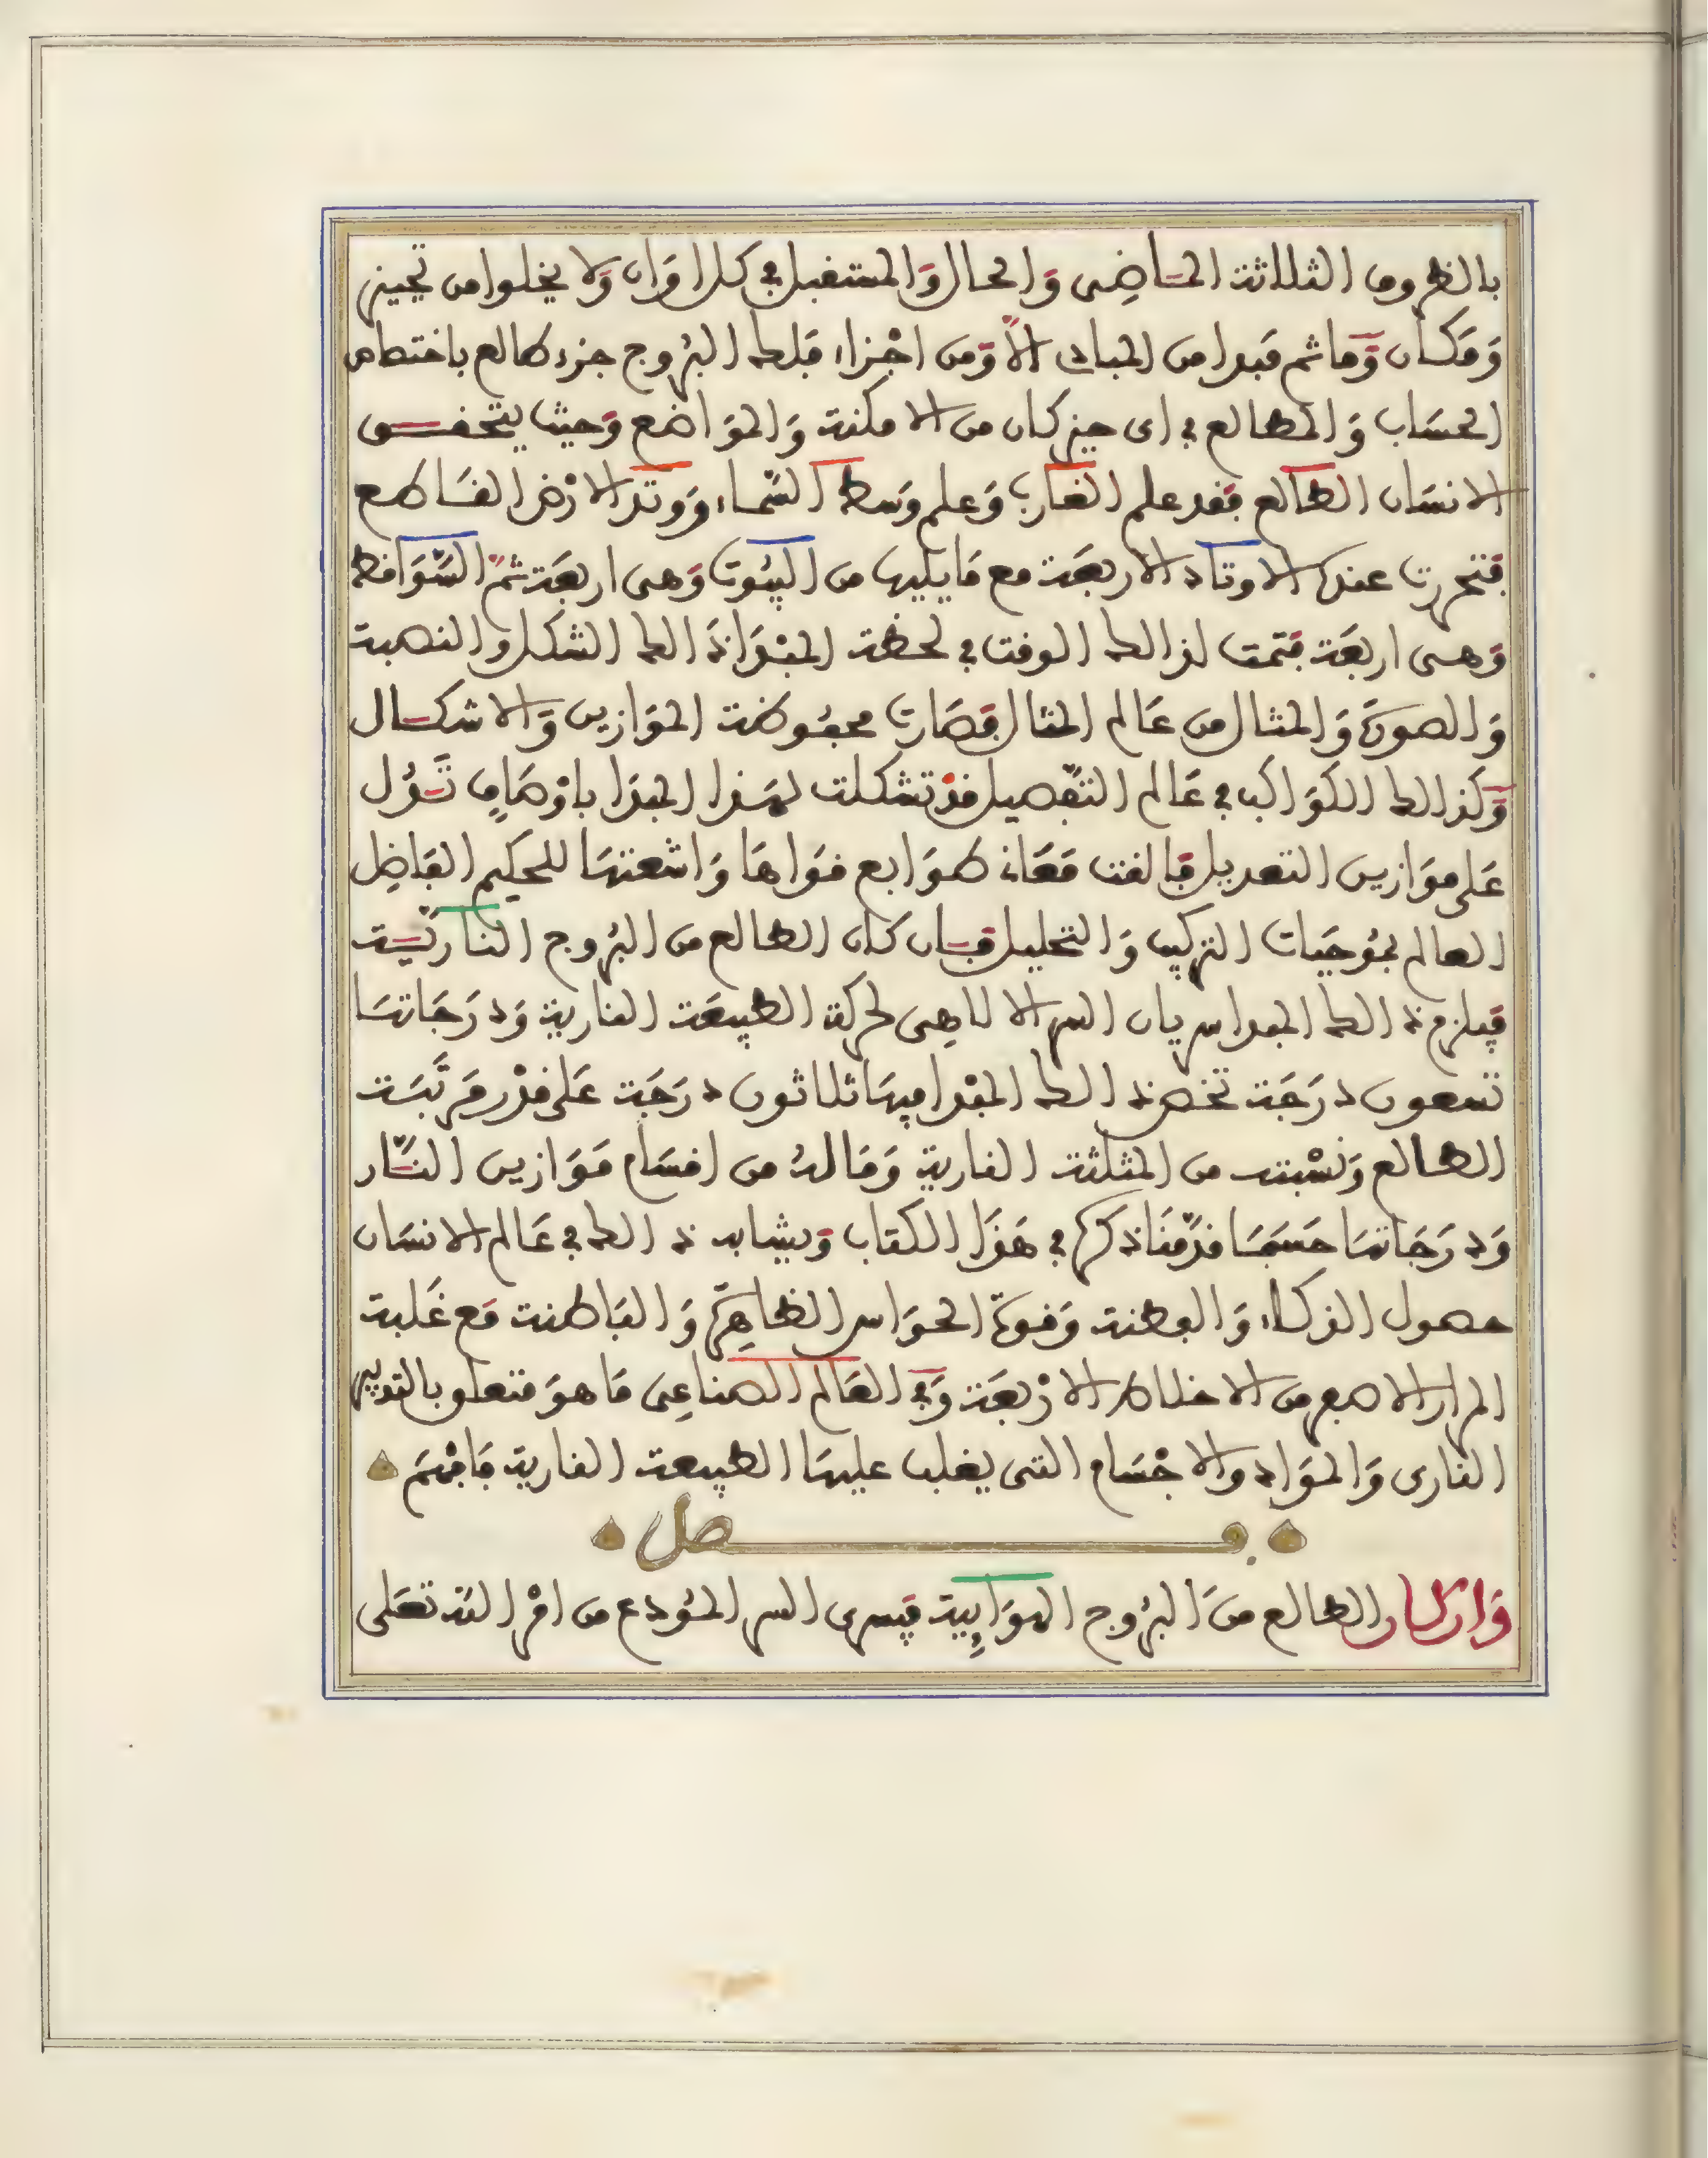 بالظروف الثلاثة الماضى وَالحال وَالمستقبل في كل اوَان وَلا يخلوا من تحييز
وَمَكان وَما ثم مَبدا من المبادى الا وَمن اجْزاء فلك البرُوج جزء طالع باختصاص
الحسَاب وَالمطالع في اى حيز كان من الامكنة وَالموَاضع وَحيث يتحقــق
الانسَان الطالع فقد علم الغارب وَعلم وَسط السّماء وَوتد الارْض القـَاطع
فتحررت عندك الاوتاد الاربعَة مع مَا يليها من البيُوت وَهى اربعَة ثمّ السّوَاقط
وَهى اربعَة فتمت لذالك الوقت في لحظة المبْدَا ذَالك الشكل والنصبة
وَالصورَة وَالمثال من عَالم المثال فصَارت محفُوظة الموَازين وَالاشكـال
وَكذالك الكوَاكب في عَالم التفصيل قدْ تشكلت لهَذا المبدَا باوْصَافٍ تَـدُل
عَلى موَازين التعديل فالقت مَعَانى طوَابع قوَاها وَاشعتهَا للحكيم الفاضِل
العالم بموُجبَات التركيب وَالتحليل فـان كان الطالع من البرُوج الناريّـة
فيلزم ذالك المبدا سريان السر الالاهِى لحركة الطبيعَة النارية وَدرَجَاتهَا
تسعون درَجَة تخص ذالك المبْدا فيهَا ثلاثون درَجَة عَلى قدْر مَرتَبَـة
الطالع وَنسْبته من المثلثة النارية وَمَا لهُ من اقسَام مَوَازين النـّار
وَدرَجَاتهَا حَسَبمَا قدّمنَا ذكرها في هَذَا الكتاب وَيشابه ذالك في عَالم الانسَان
حصول الذكاء وَالفطنة وَقوة الحوَاس الظاهِرَة وَالبَاطنة مَع غَلبة
المرار الاصفر من الاخلاط الارْبعَة وَفي العَالم الصناعِى مَا هوَ متعلق بالتدبير
النارى وَالموَاد والاجْسَام التى يغلب عليهَا الطبيعة النارية فَافهَم
فــصل
وَان كان الطالع منَ البرُوج الهوَاىِٕية فيسرى السر المُودع من امْر اللّه تعَلى